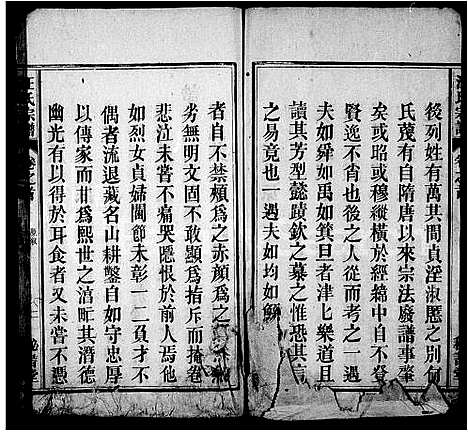 後列姓有萬其間貞淫淑慝之別何
氏蔑有自隋唐以來宗法廢譜事肇
矣或昭或穆縱橫於經綿中自不啻
賢逸不肖也後之人從而考之一遇
夫如舜如禹如箕旦者津匕樂道且
讀其芳型懿蹟欽之慕之惟恐其言
之易竟也一遇夫如均如
者自不禁頳為之赤顏為之
劣無明文固不敢顯為指斥掩卷
悲泣未嘗不痛哭慝恨於前人焉他
如烈女貞婦閫節未彰一二負才不
偶者流退藏名山耕鑿自如守忠厚
以傳家而甘為熙世之潛德
幽光有以得於耳食者又未嘗不憑
汪氏宗譜
卷之首